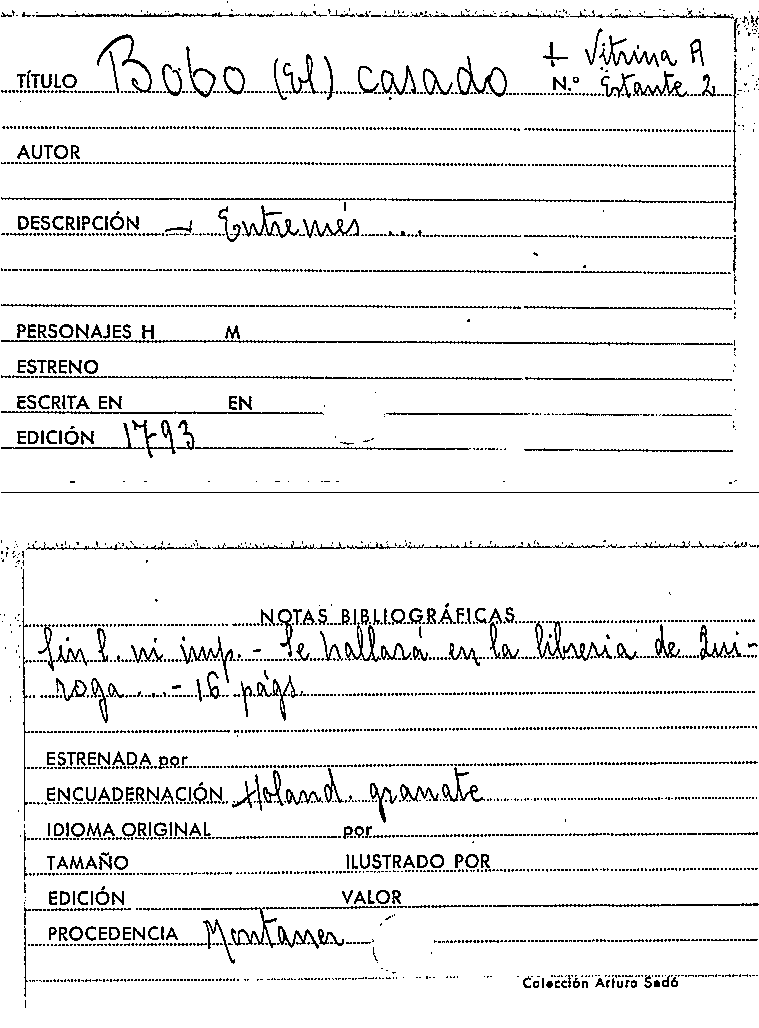 TÍTULO Bobo (El) casado + Vitrina A
N.º Estante 2
AUTOR
DESCRIPCIÓN — Entremés ...
PERSONAJES H M
ESTRENO
ESCRITA EN EN
EDICIÓN 1793
NOTAS BIBLIOGRÁFICAS
Sin l. ni imp. - Se hallará en la libreria de Qui-
roga ... - 16 págs.
ESTRENADA por
ENCUADERNACIÓN Holand. granate
IDIOMA ORIGINAL por
TAMAÑO ILUSTRADO POR
EDICIÓN VALOR
PROCEDENCIA Montaner
Colección Arturo Sedó